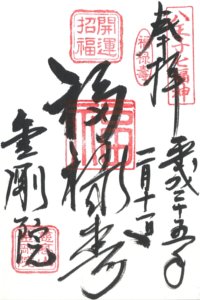 奉拝
八王子七福神
平成二十五年
一月十一日
開運
招福
福禄寿
福
金剛院